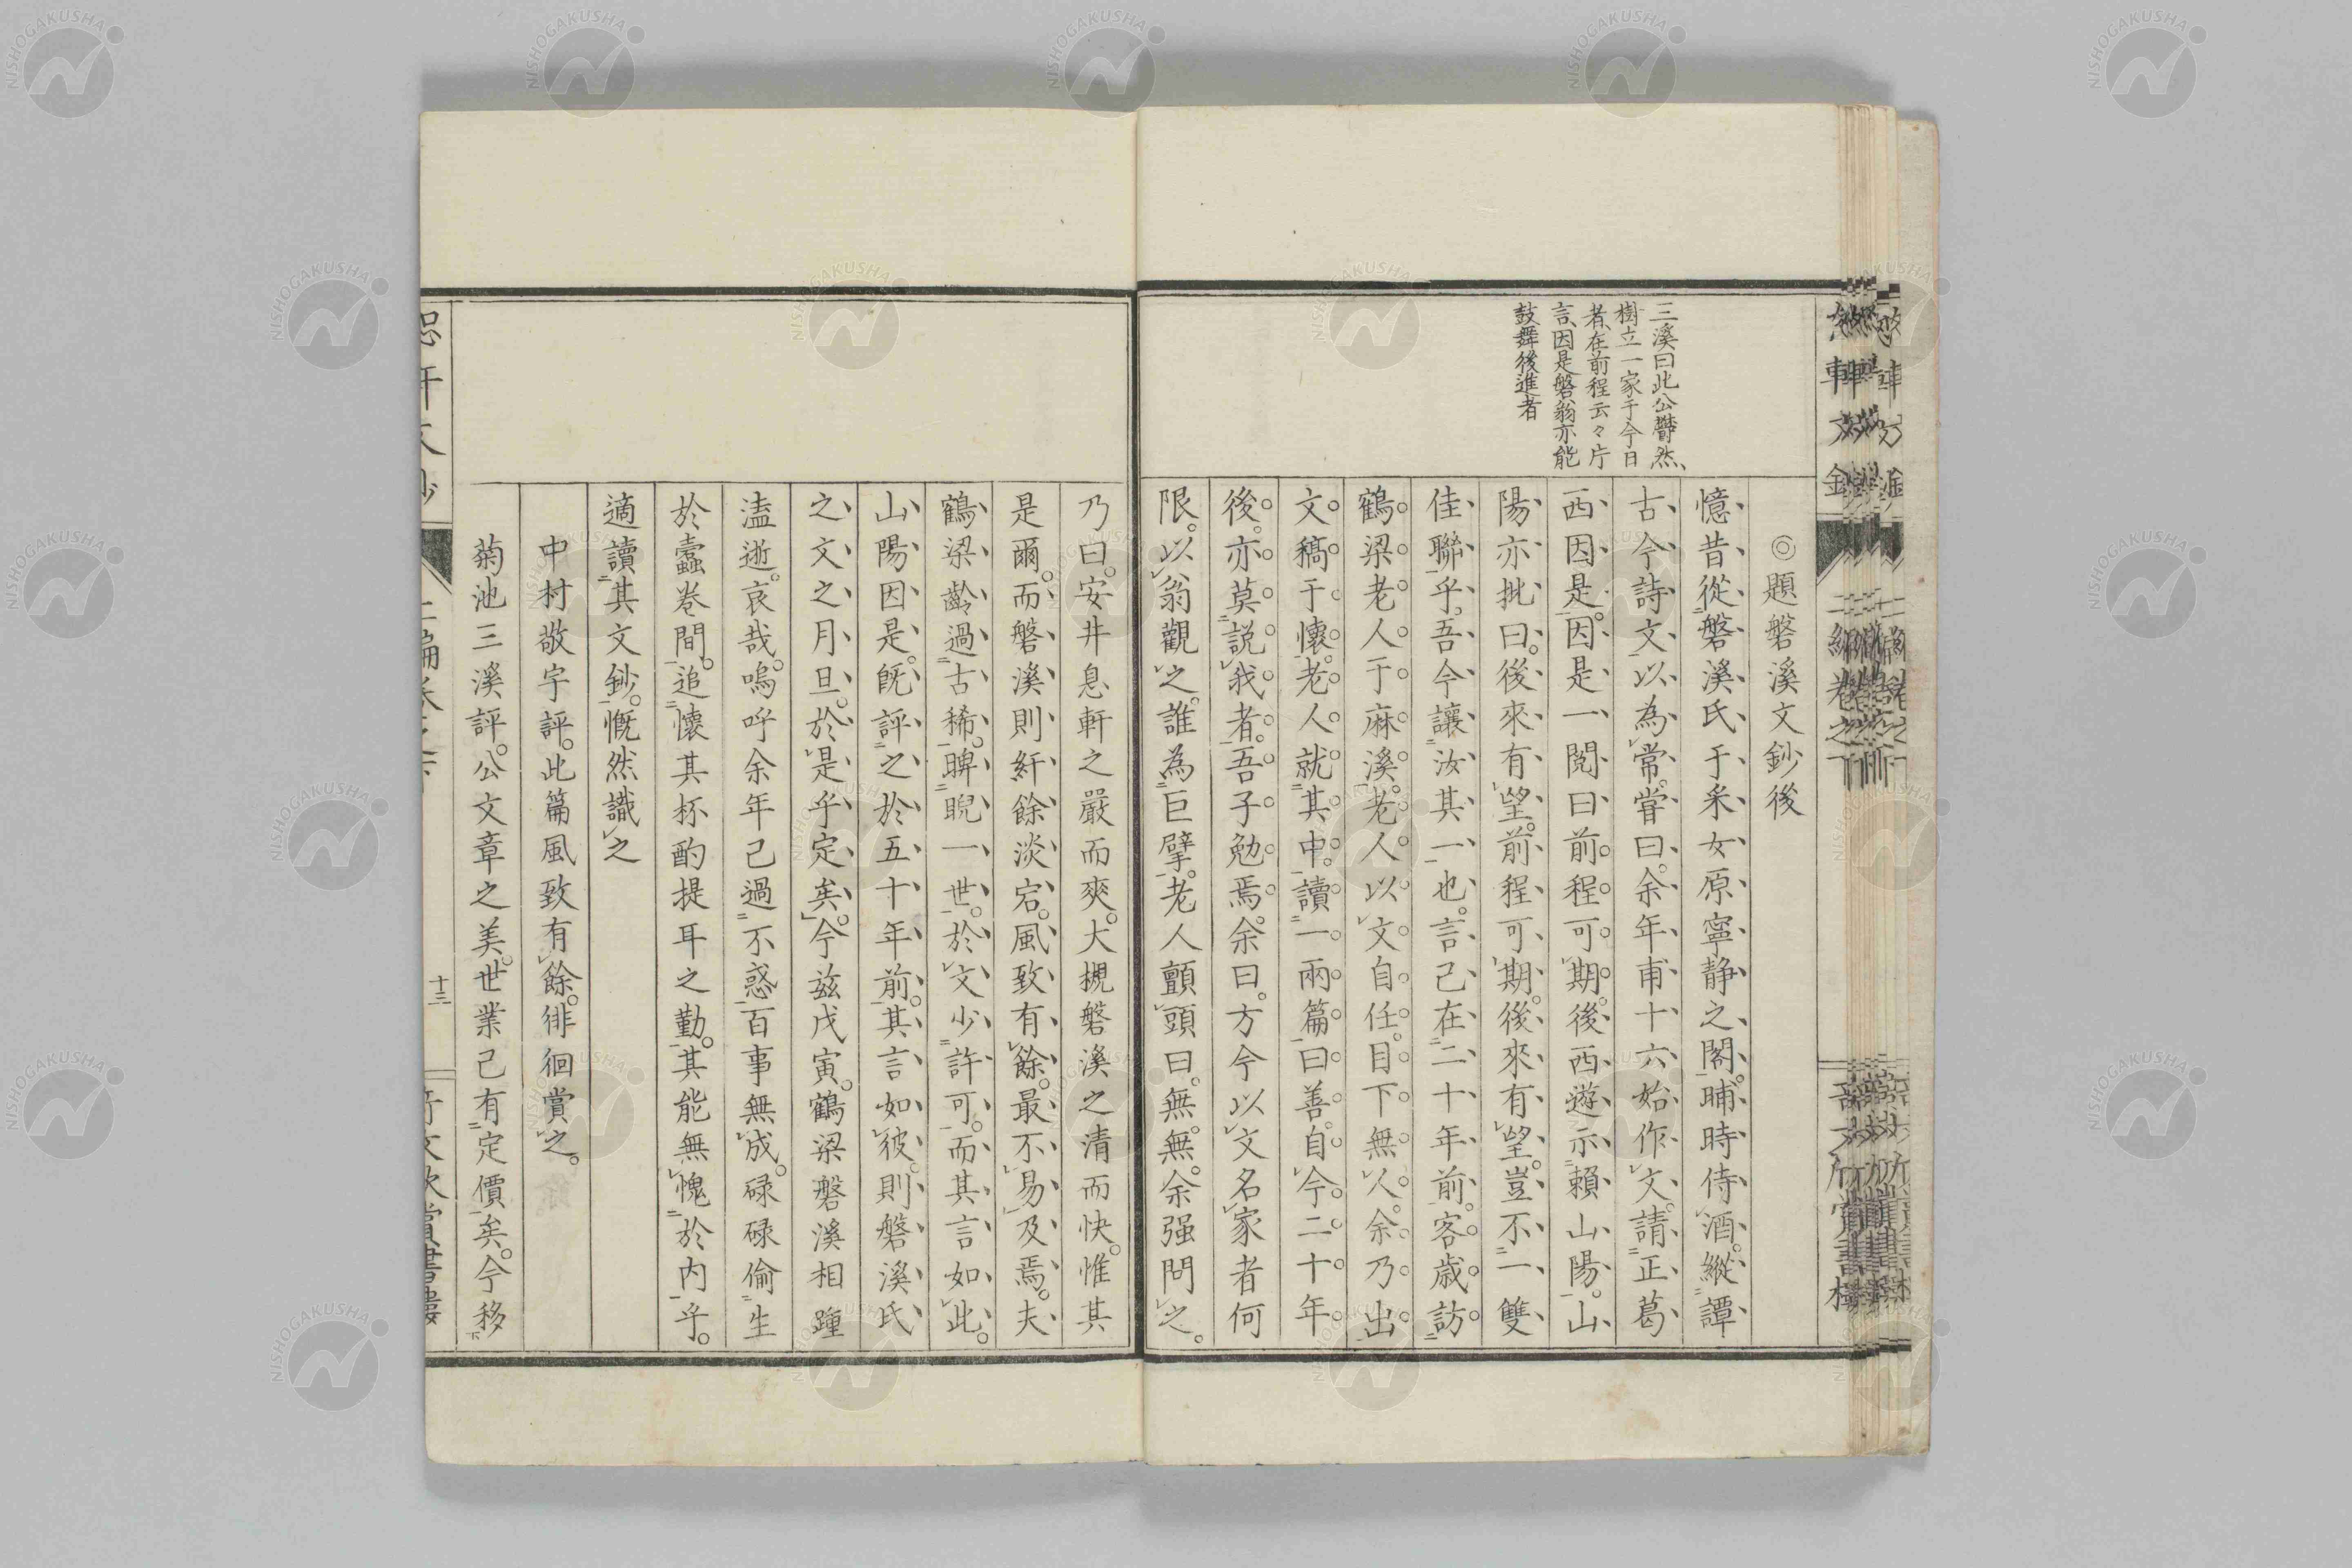 三溪曰此公鬱然、
樹立一家于今日
者、在前程云々片
言、因是磐翁亦能
鼓舞後進者
◎題磐溪文鈔後
憶昔從磐溪氏于釆女原寧静之閣。晡時侍酒。縱譚
古今詩文以為常。甞曰。余年甫十六始作文。請正葛
西因是。因是一閲曰前程可期。後西遊示賴山陽。山
陽亦批曰。後來有望。前程可期。後來有望。豈不一雙
佳聯乎。吾今讓汝其一也。言已在二十年前。客歳訪
鶴梁老人于麻溪。老人以文自任。目下無人。余乃出
文稿于懷。老人就其中。讀一兩篇曰善。自今二十年
後。亦莫説我者。吾子勉焉。余曰。方今以文名家者何
限。以翁觀之。誰為巨擘。老人顫頭曰。無無。余强問之。
乃曰。安井息軒之嚴而爽。大槻磐溪之清而快。惟其
是爾。而磐溪則紆餘淡宕。風致有餘。最不易及焉。夫
鶴梁齡過古稀。睥睨一世。於文少許可。而其言如此。
山陽因是。旣評之於五十年前。其言如彼。則磐溪氏
之文之月旦。於是乎定矣。今兹戊寅。鶴梁磐溪相踵
溘逝。哀哉。嗚呼余年已過不惑百事無成。碌碌偷生
於蠹卷間。追懷其杯酌提耳之勤。其能無愧於内乎。
適讀其文鈔。慨然識之
中村敬宇評。此篇風致有餘。徘徊賞之。
菊池三溪評。公文章之美。世業已有定價矣。今移
十三
NISHOGAKUSHA